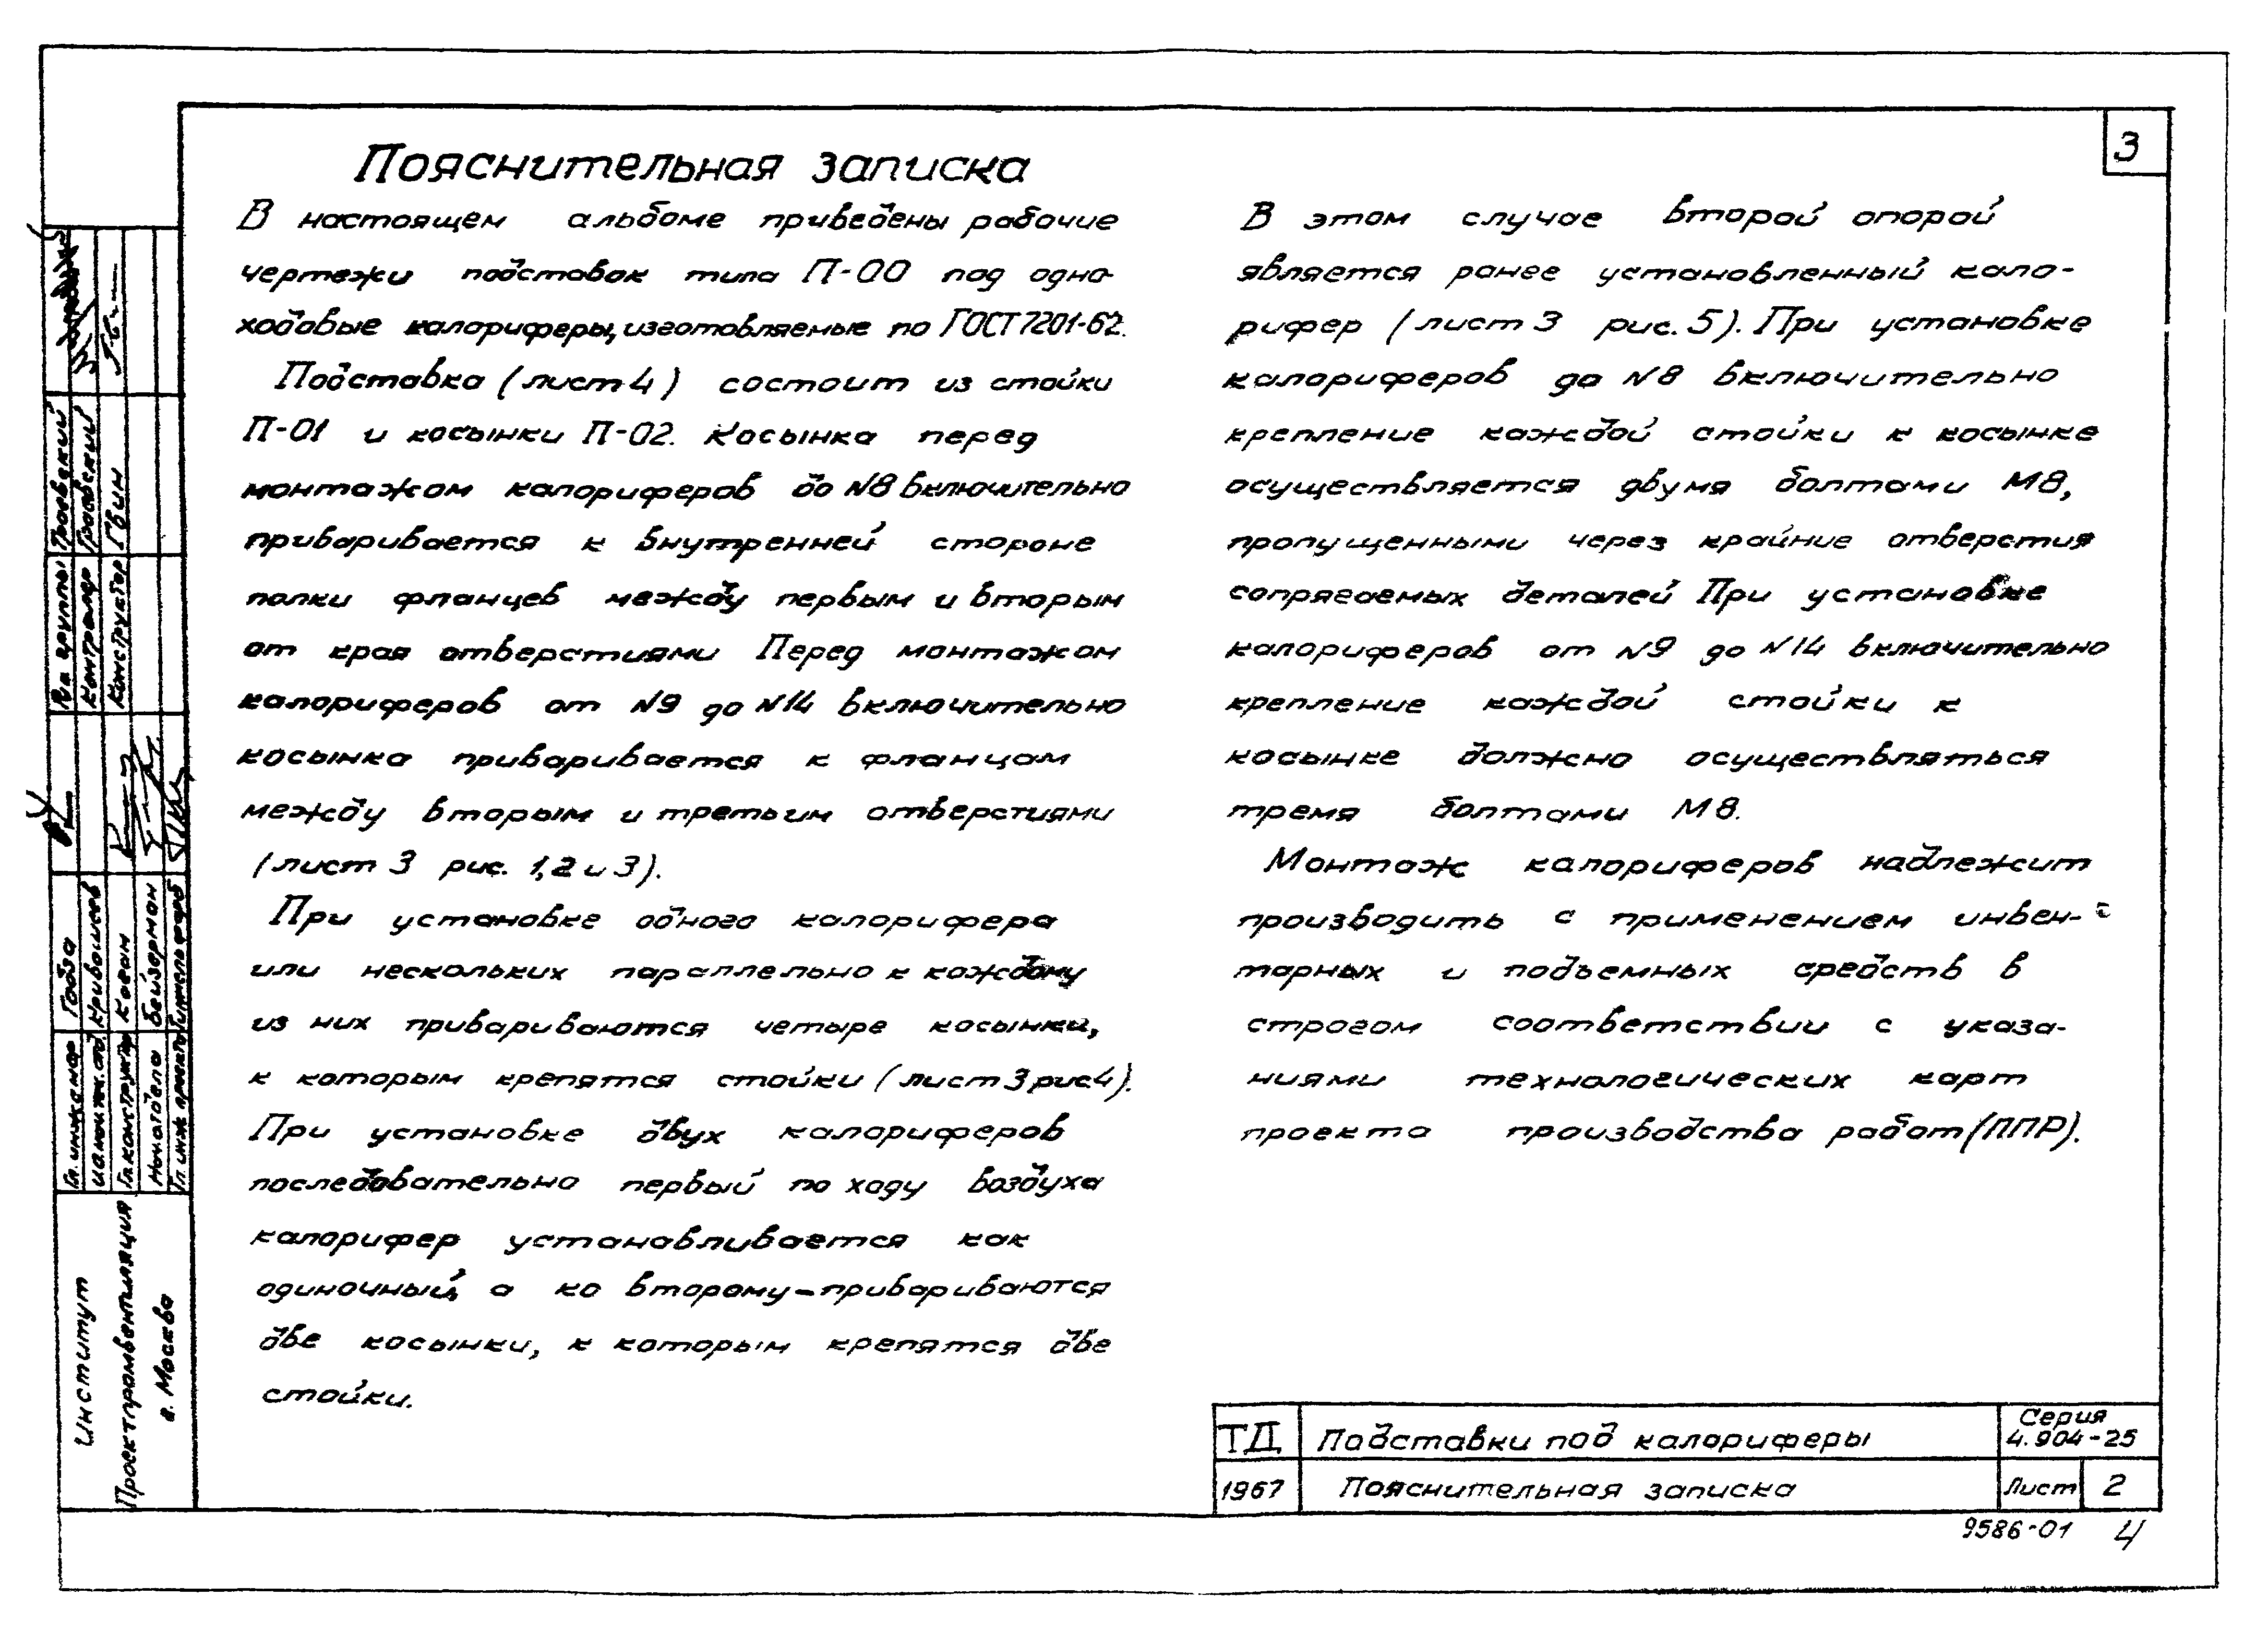 3
Пояснительная записка
В настоящем альбоме приведены рабочие
чертежи подставок типа П-00 под одно-
ходовые калориферы, изготовляемые по ГОСТ 7201-62.
Подставка (лист 4) состоит из стойки
П-01 и косынки П-02. Косынка перед
монтажом калориферов до N8 включительно
приваривается к внутренней стороне
полки фланцев между первым и вторым
от края отверстиями Перед монтажом
калориферов от N9 до N14 включительно
косынка приваривается к фланцам
между вторым и третьим отверстиями
(лист 3 рис. 1,2 и 3).
При установке одного калорифера
или нескольких параллельно к каждому
из них привариваются четыре косынки,
к которым крепятся стойки (лист 3 рис 4).
При установке двух калориферов
последовательно первый по ходу воздуха
калорифер устанавливается как
одиночный, а ко второму - привариваются
две косынки, к которым крепятся две
стойки.
В этом случае второй опорой
является ранее установленный кало-
рифер (лист 3 рис. 5). При установке
калориферов до N8 включительно
крепление каждой стойки к косынке
осуществляется двумя болтами М8,
пропущенными через крайние отверстия
сопрягаемых деталей При установке
калориферов от N9 до N14 включительно
крепление каждой стойки к
косынке должно осуществляться
тремя болтами М8.
Монтаж калориферов надлежит
производить с применением инвен-
тарных и подъемных средств в
строгом соответствии с указа-
ниями технологических карт
проекта производства работ (ППР).
ТД Подставки под калориферы Серия 4.904-25
1967 Пояснительная записка Лист 2
9586-01 4
Рук группы
Контролер Грабовский
Конструктор Гвин
Гл. инженер Годза
Кривошеев
Гл. конструктор Коган
Нач. отдела Бейзерман
Гл. инж. проекта
Институт
Проектпромвентиляция
г. Москва